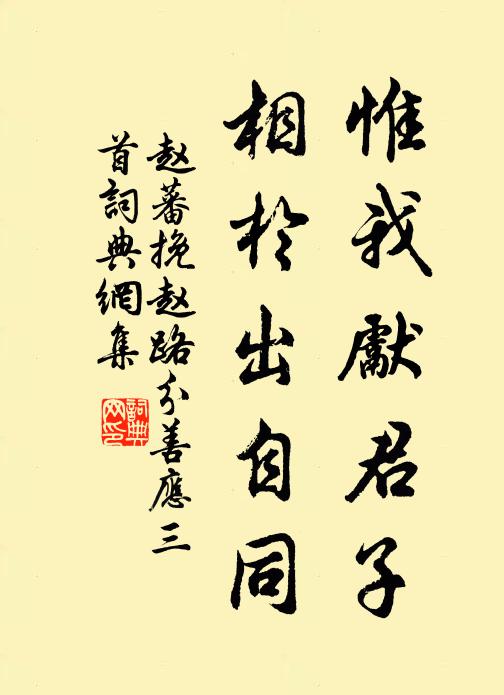 惟我獻君子
相於出自同
赵蕃挽赵路分善應三
首詞典網集
詞典
网印